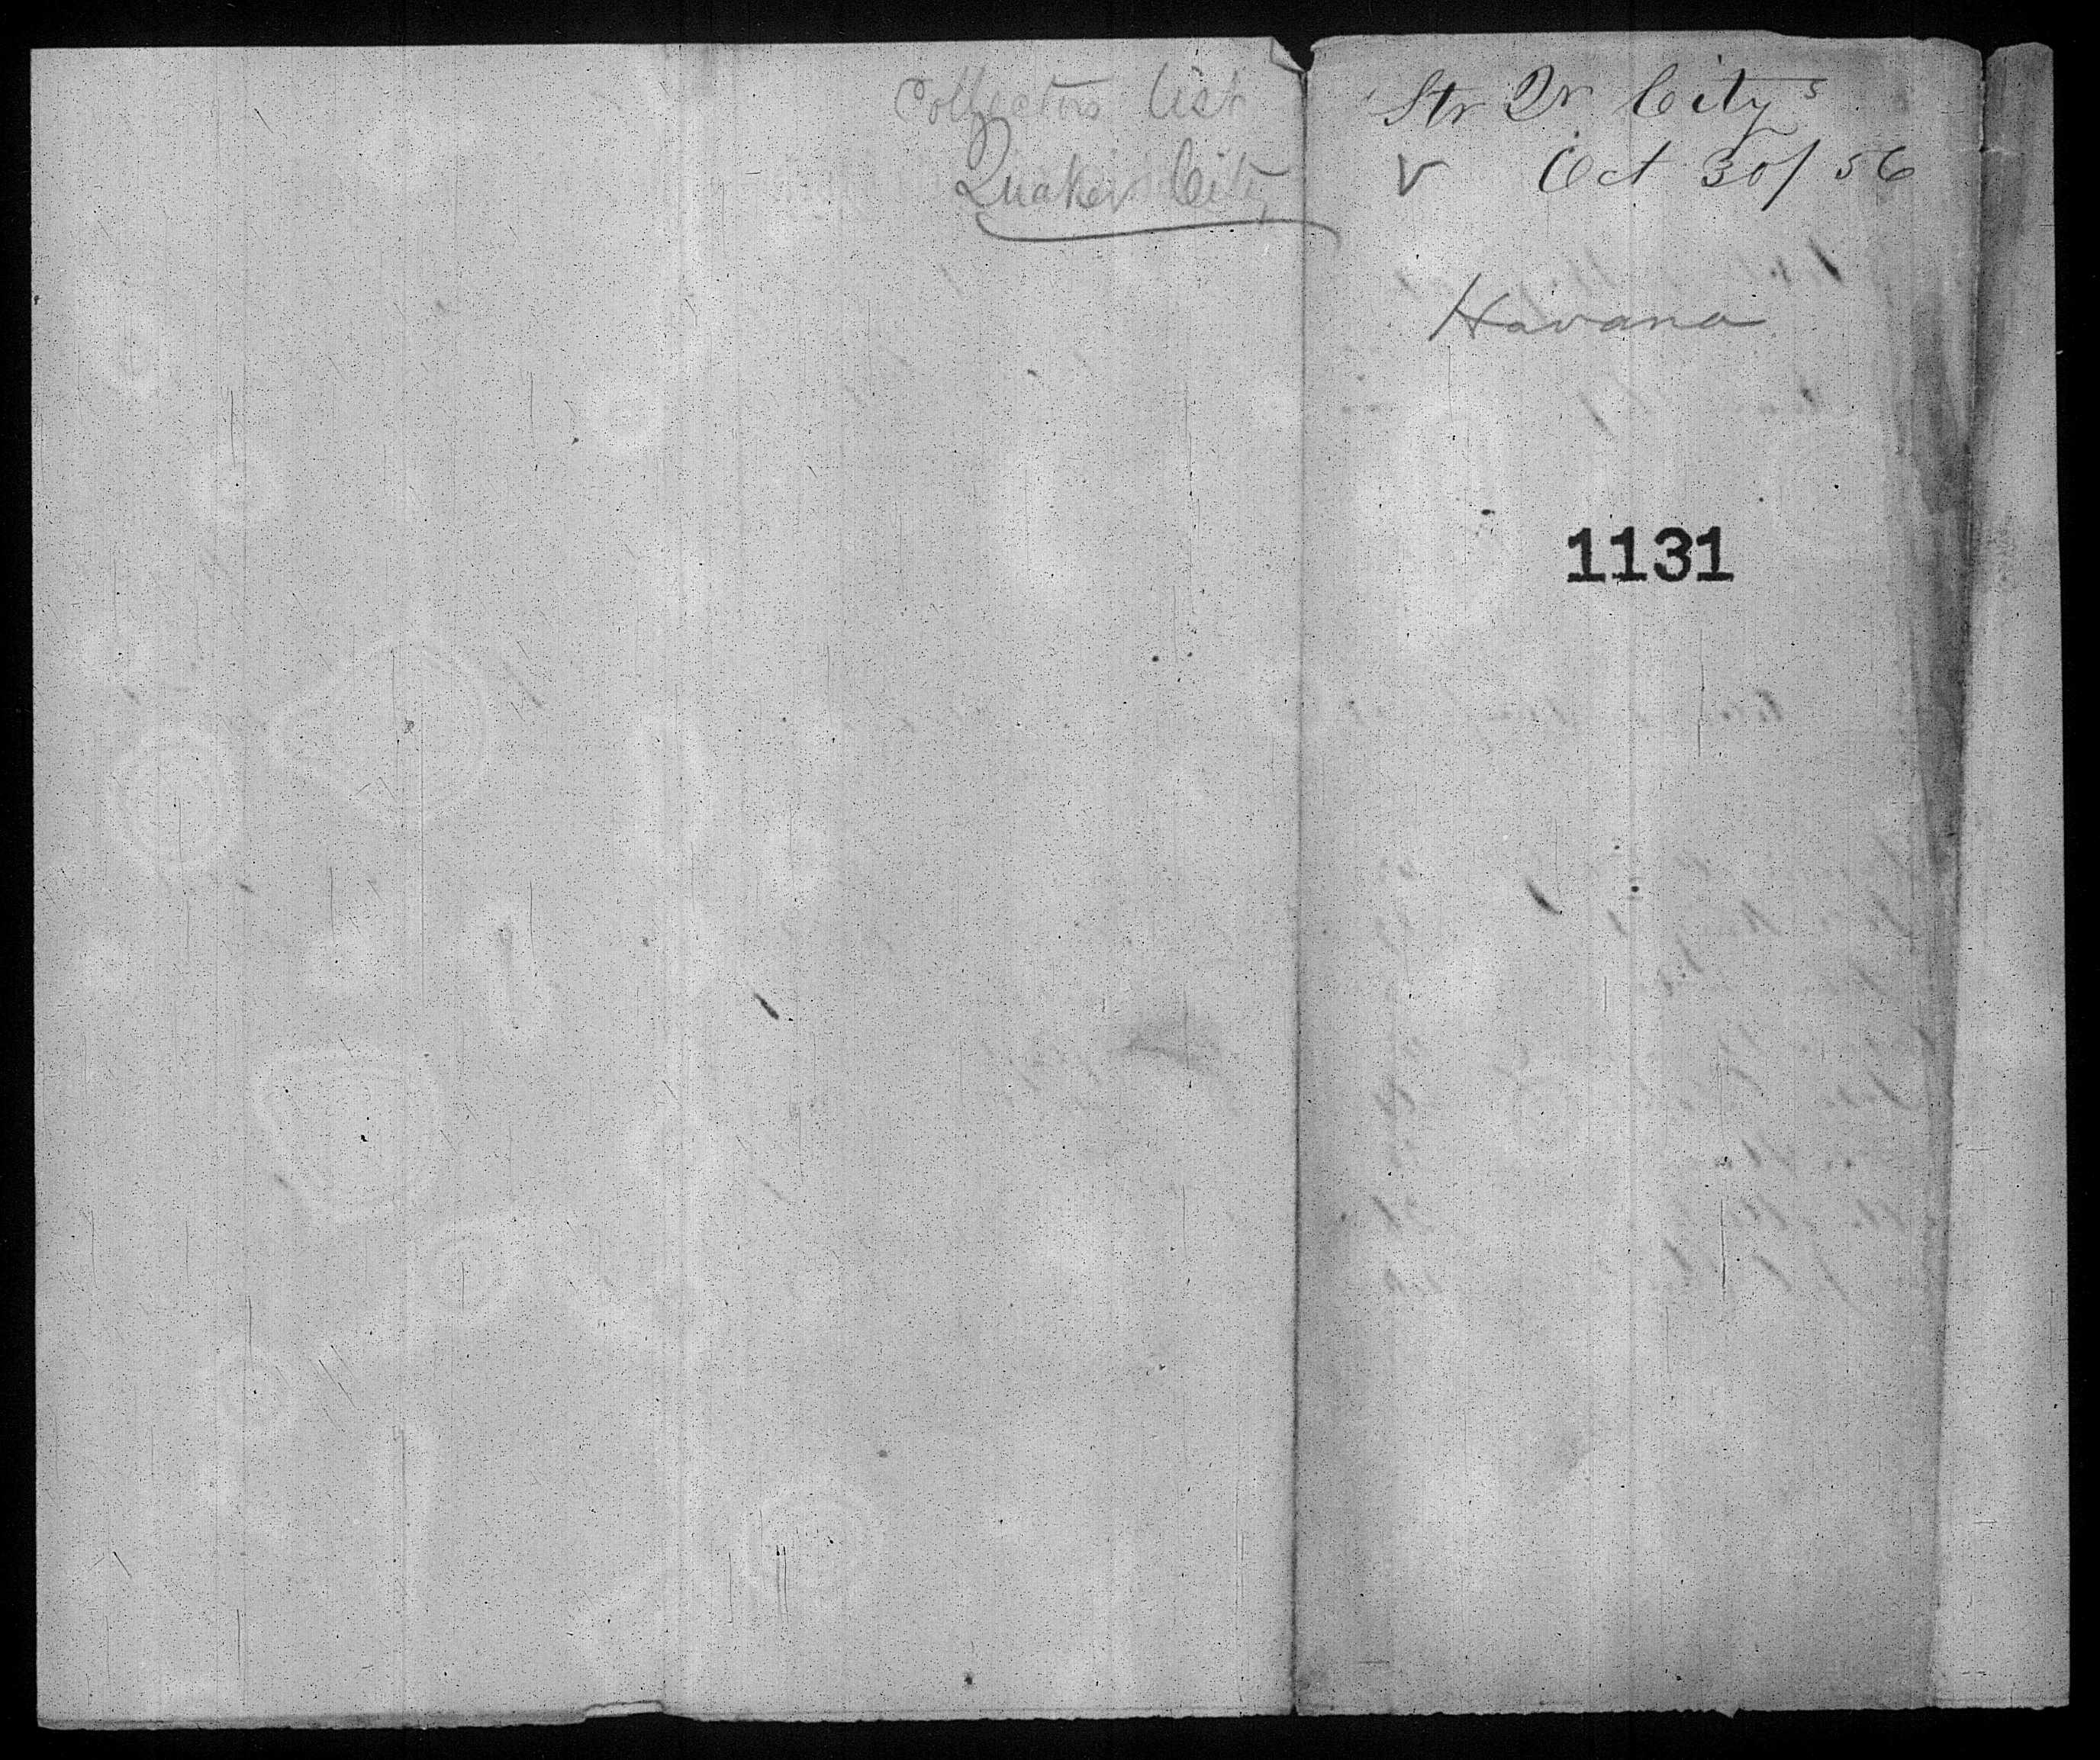 Collectors List
Quaker City
Str Qr City s
v Oct 30/56
Havana
1131